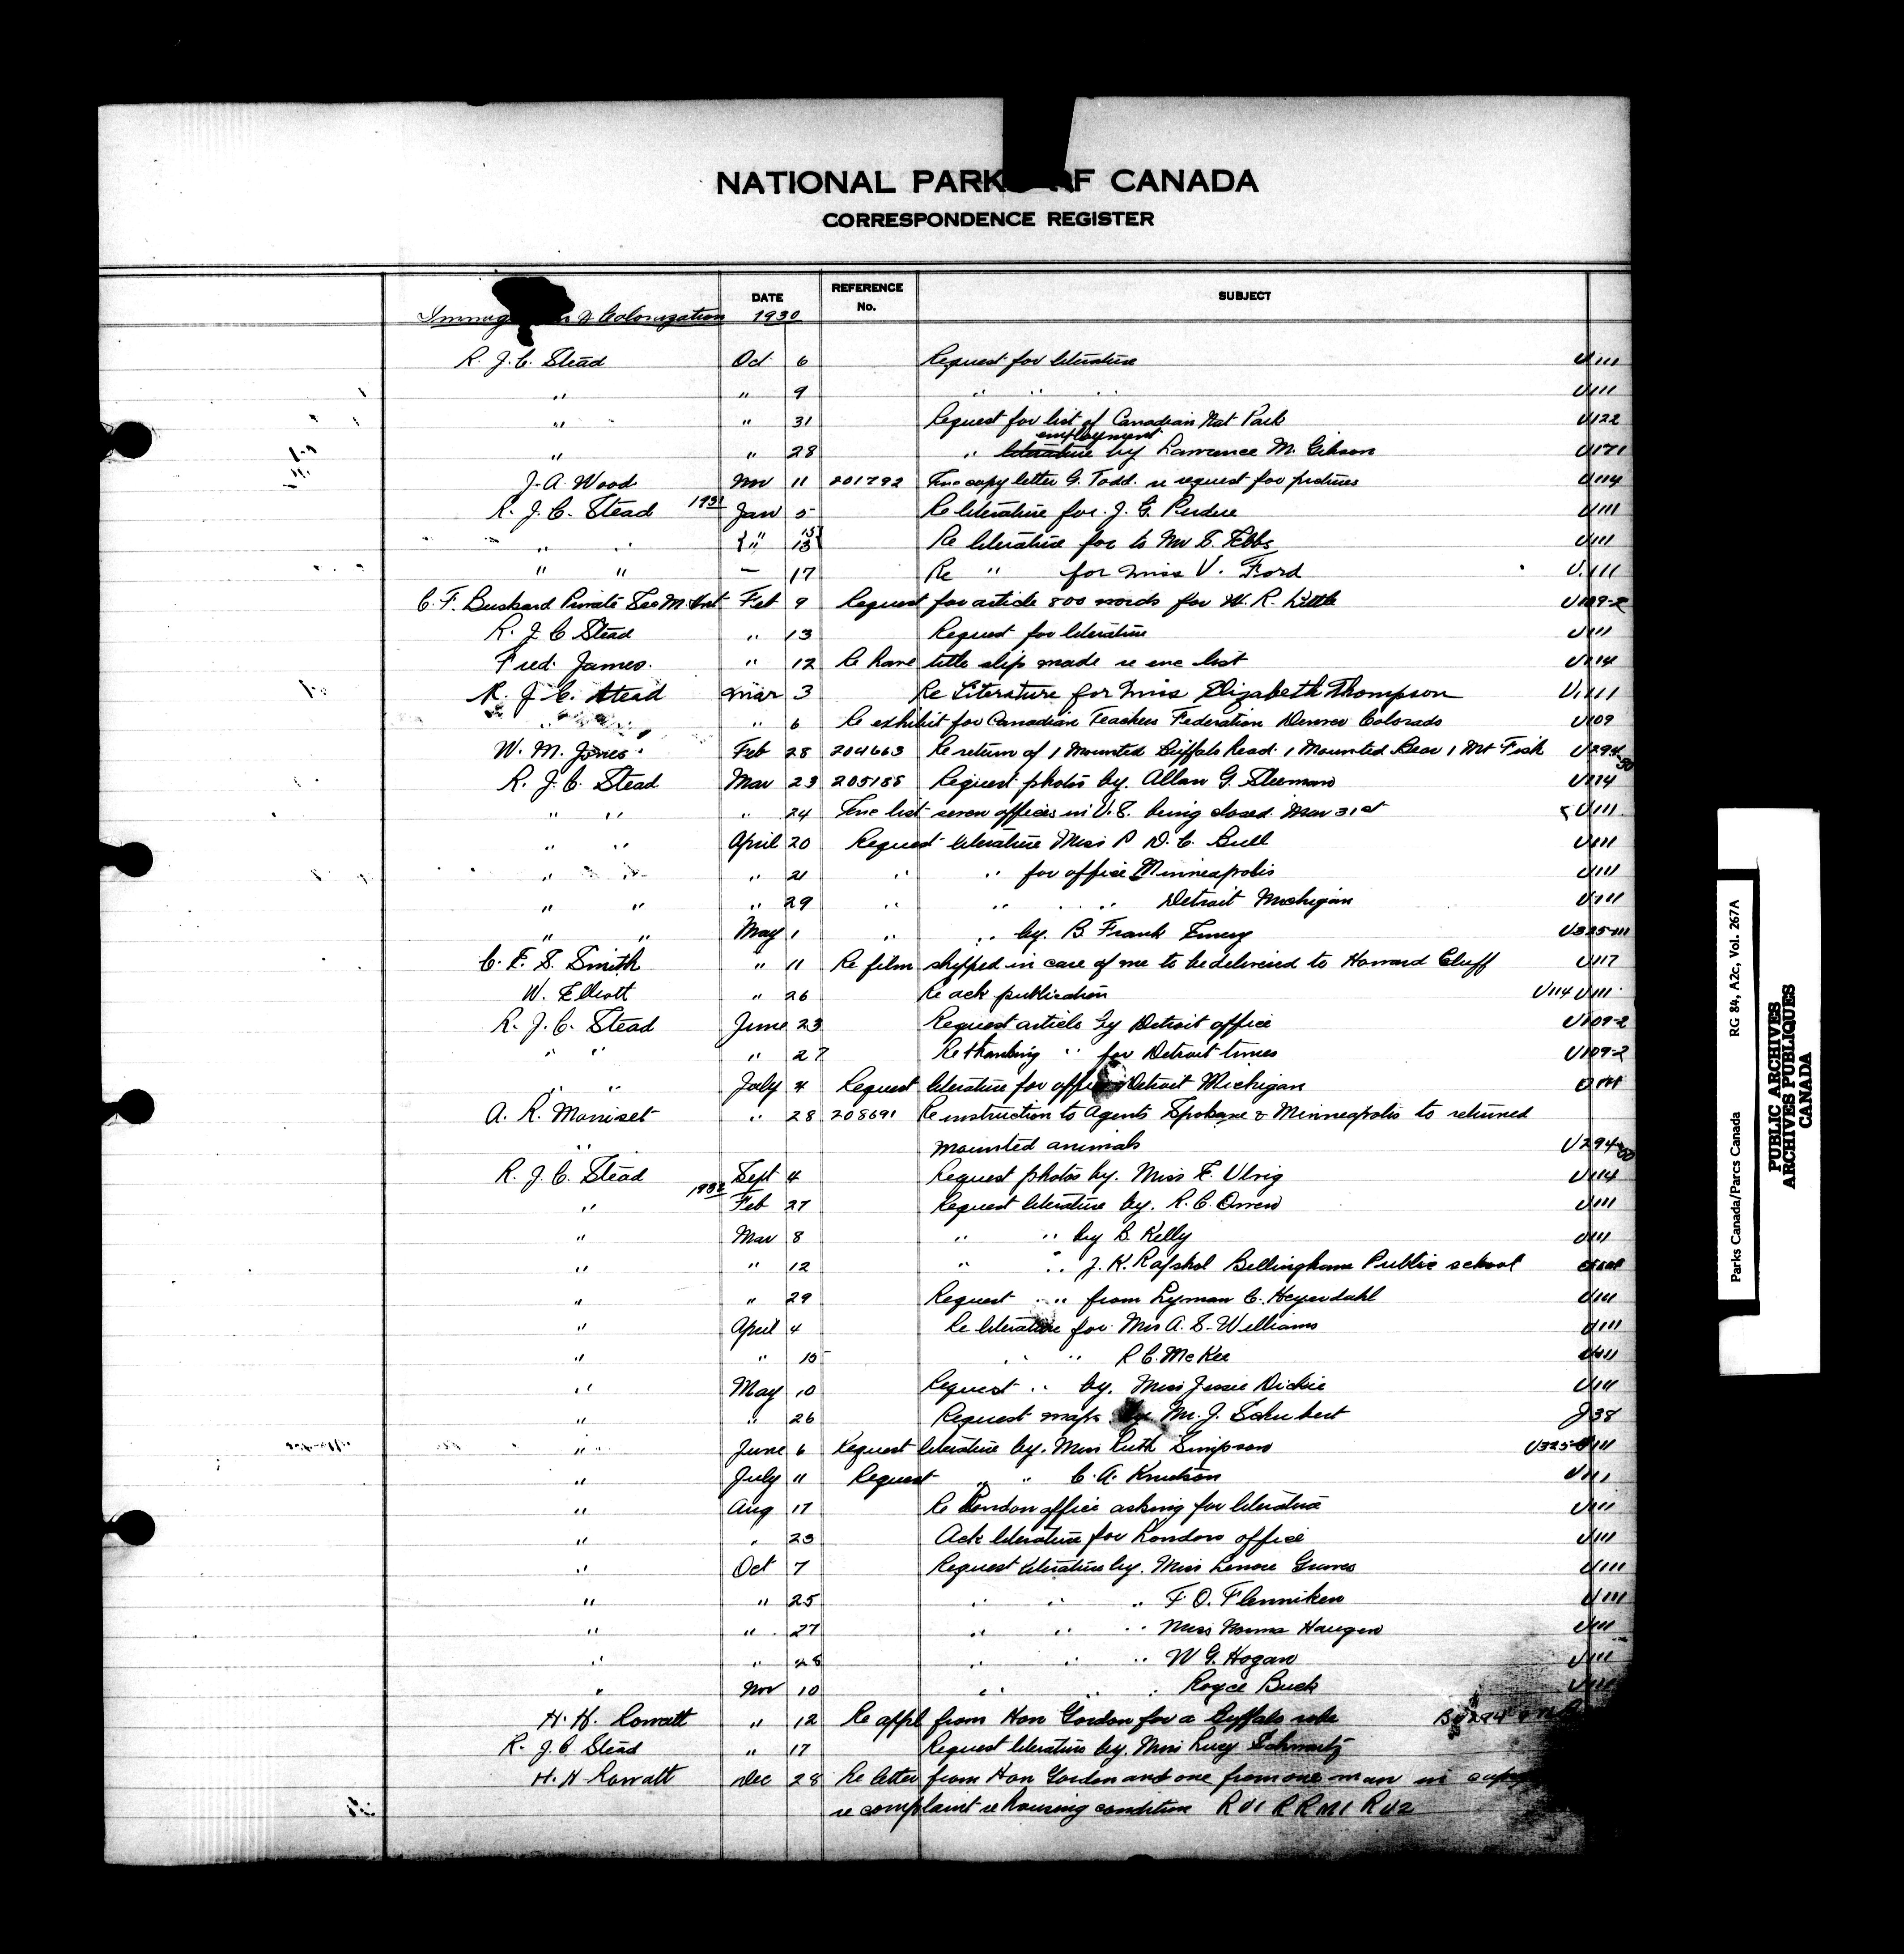 NATIONAL PARKS OF CANADA
CORRESPONDENCE REGISTER
DATE REFERENCE No. SUBJECT
& Colonization 1930
R. J. C. Stead Oct 6 Request for literature U111
" " 9 " " " U111
" " 31 Request for list of Canadian Nat Park U122
employment
" " 28 " literature by Lawrence M. Gibson U171
J. A. Wood Nov 11 201792 Enc copy letter G. Todd. re request for pictures U114
R. J. C. Stead 1931 Jan 5 Re literature for J. G. Perdue U111
" " " 13 Re literature for to Mr S. Ebbs U111
" " — 17 Re " for Miss V. Ford U.111
C. F. Private Sec Feb 9 Request for article 800 words for W. R. Little U109-2
R. J. C Stead " 13 Request for literature U111
Fred. James. " 12 Re have title slips made re enc list U114
R. J. C. Stead Mar 3 Re Literature for Miss Elizabeth Thompson U.111
" " 6 Re exhibit for Canadian Teachers Federation Denver Colorado U109
W. M. Jones Feb 28 204663 Re return of 1 Mounted Buffalo head. 1 Mounted Bear 1 Mt Fish U294-30
R. J. C. Stead Mar 23 205188 Request photos by. Allan G. U114
" " " 24 Enc list seven offices in U.S. being closed. Mar 31st U111
" " April 20 Request literature Miss P D. C. Bull U111
" " " 21 " " for office Minneapolis U111
" " " 29 " " " " Detroit Michigan U111
" " May 1 " " by. B Frank Emery U325-111
C. E. S. Smith " 11 Re film shipped in care of me to be delivered to Howard Cluff U117
W. Elliott " 26 Re ack publication U114 U111
R. J. C. Stead June 23 Request article by Detroit office U109-2
" " " 27 Re thanking " for Detroit times U109-2
" " July 4 Request literature for office Detroit Michigan U111
A. R. Morriset " 28 208691 Re instruction to agents Spokane & Minneapolis to returned
" mounted animals U294-30
R. J. C. Stead Sept 4 Request photos by. Miss E. Ulrig U114
" 1932 Feb 27 Request literature by. R. C. Orren U111
" Mar 8 " " by B. Kelly U111
" " 12 " " J. K. Bellingham Public school U111
" " 29 Request " from Lyman C. Heyerdahl U111
" April 4 Re literature for Mrs A. S. Williams U111
" " 15 " " R C. McKee U111
" May 10 Request " by. Miss Jessie Dickie U111
" " 26 Request maps by M. J. Schubert J38
" June 6 Request literature by. Miss Ruth Simpson U325-U111
" July 11 Request " " C. A. Knudson U111
" Aug 17 Re London office asking for literature U111
" " 23 Ack literature for London office U111
" Oct 7 Request literature by. Miss Lenore U111
" " 25 " " " F O. Flenniken U111
" " 27 " " " Miss Norma Haugen U111
" " 28 " " " W G. Hogan U111
" Nov 10 " " " Royce Buck U111
H. H. Rowatt " 12 Re appl from Hon Gordon for a Buffalo robe
R. J. C. Stead " 17 Request literature by. Miss Lucy Schwartz
H. H Rowatt Dec 28 Re letter from Hon Gordon and one from one man in
re complaint re housing condition
Parks Canada/Parcs Canada RG 84, A2c, Vol. 267A
PUBLIC ARCHIVES
ARCHIVES PUBLIQUES
CANADA